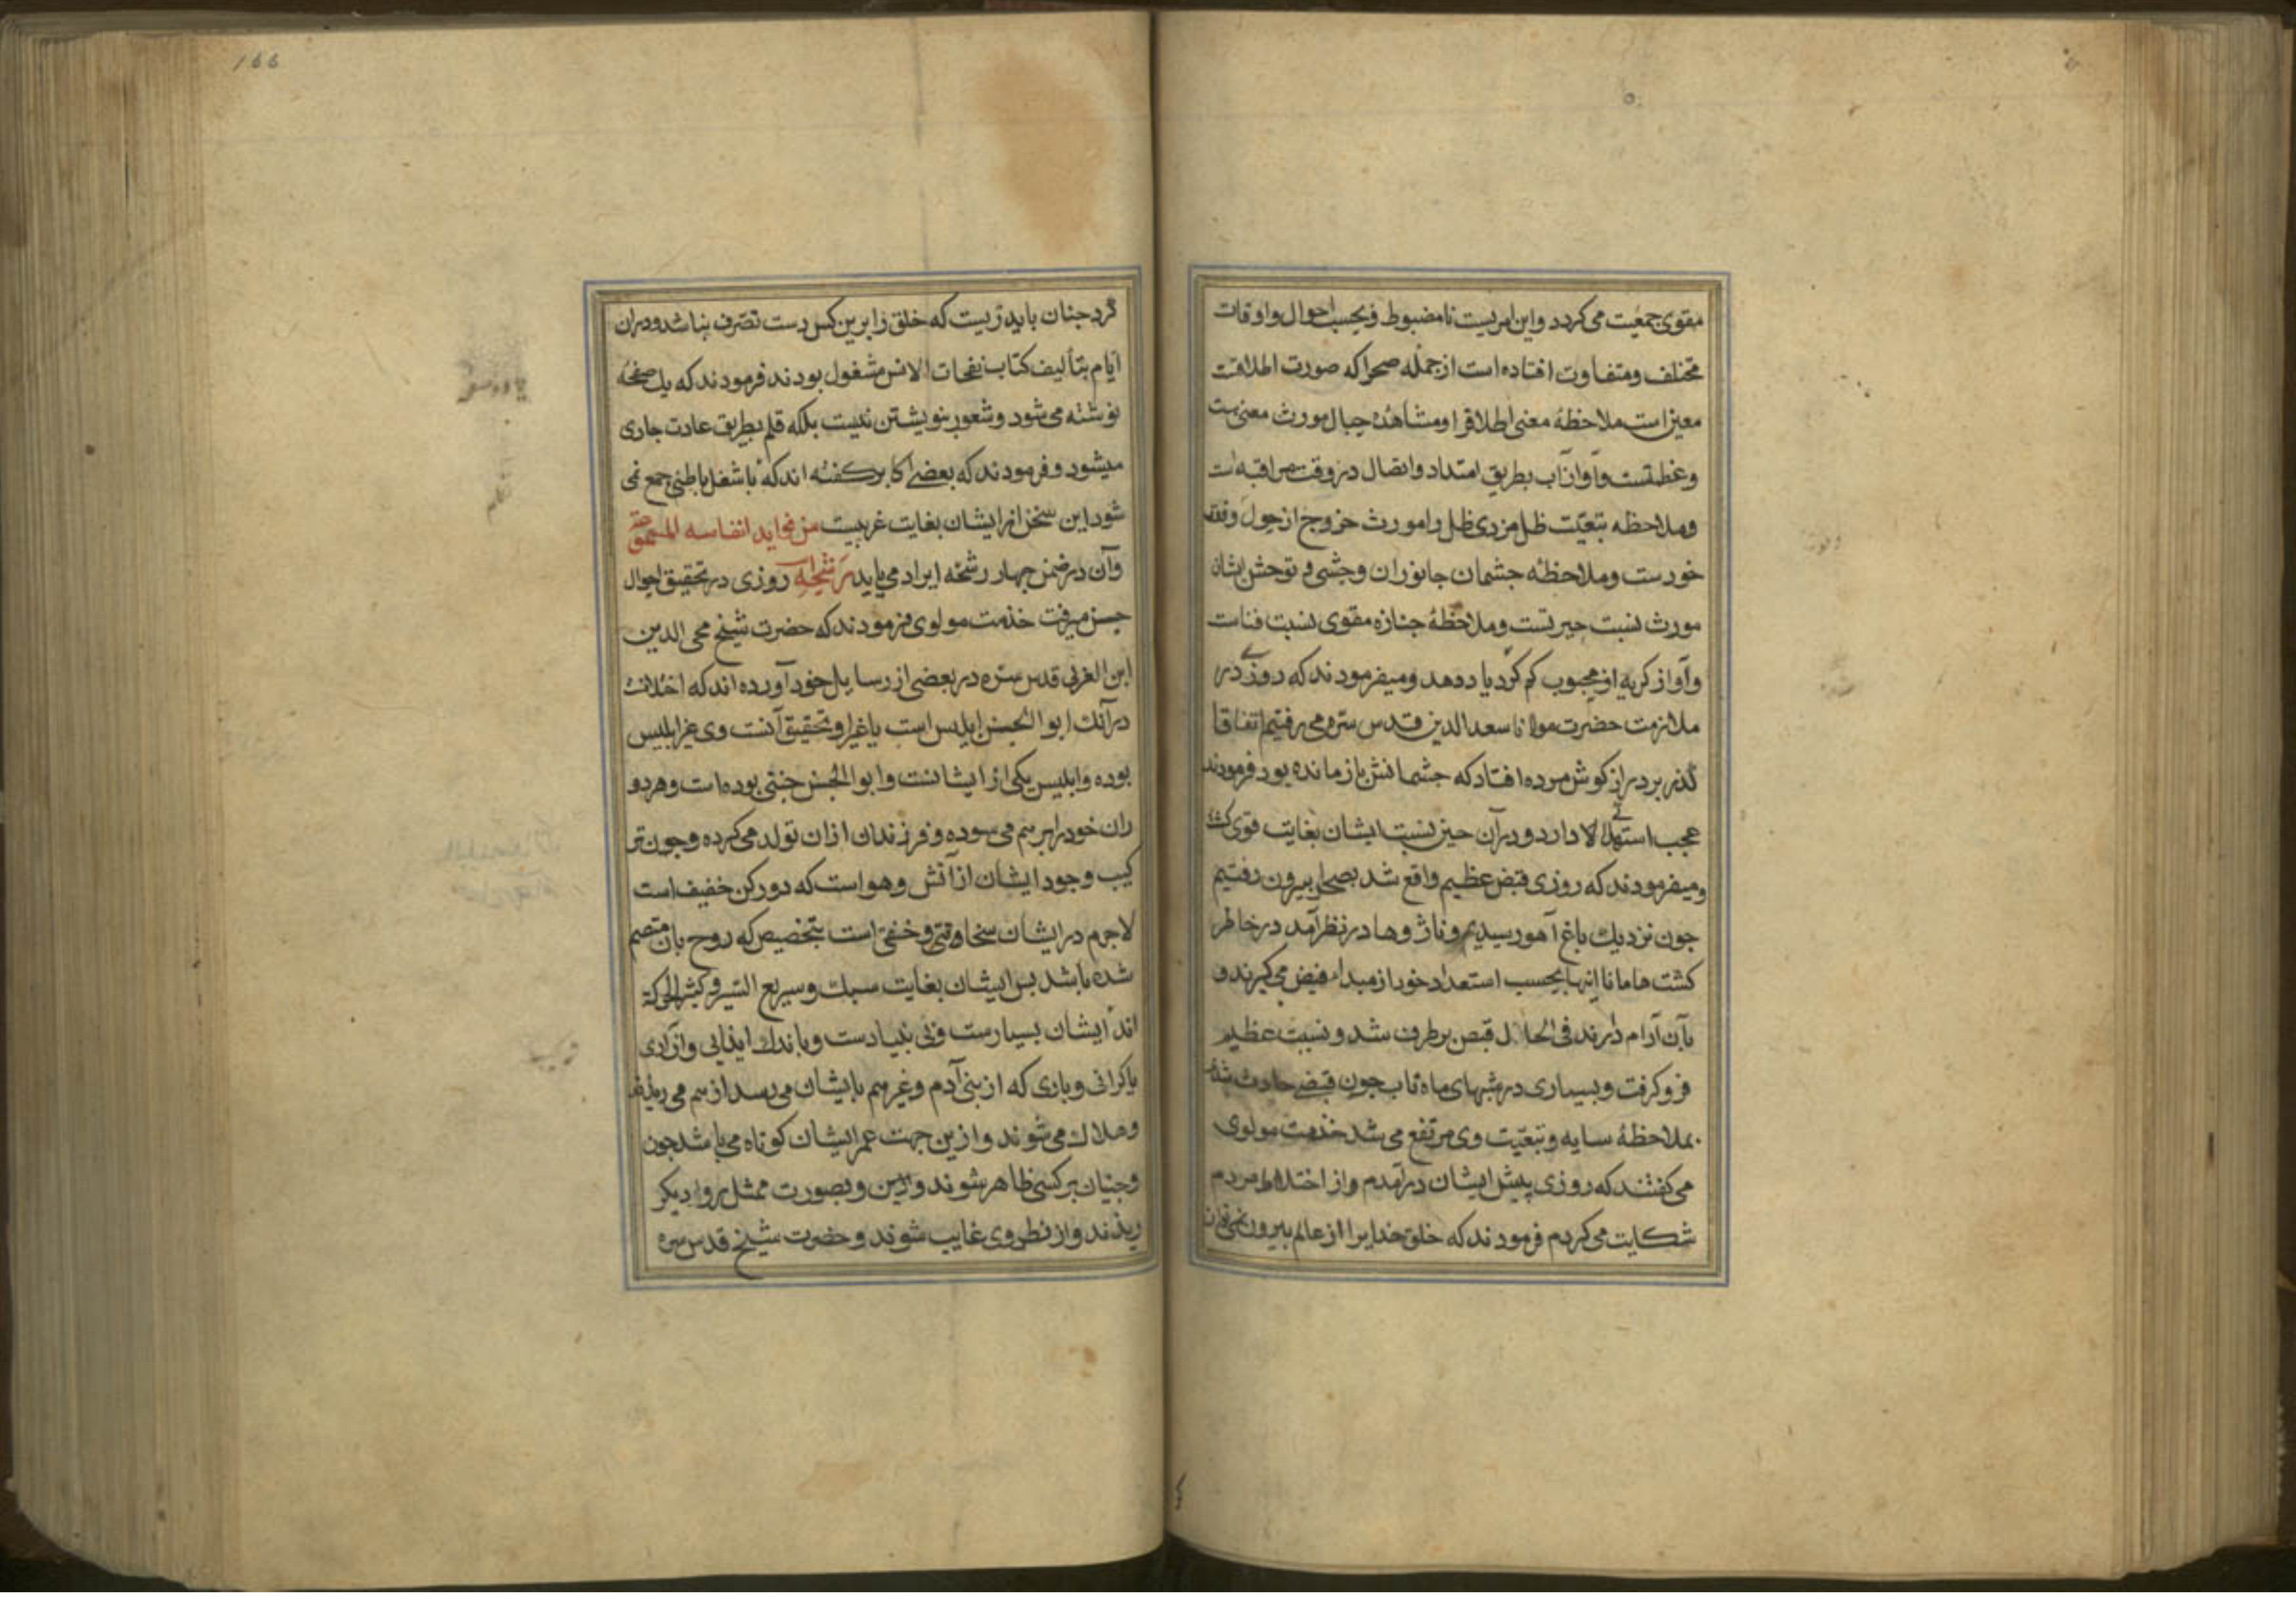 مقوی جمعیت می کردد واین امریست نامضبوط و بحسب احوال واوقات
مختلف ومتفاوت افتاده است ازجمله صحرا که صورت اطلاقت
معین است ملاحظهٔ معنی اطلاقرا ومشاهدهٔ جبال مورث معنی
وعظمتست وآواز آب بطریق امتداد واتصال در وقت مراقبه است
وملاحظه تبعیّت ظل مر ذی ظل را مورث خروج از حول وقوت
خورست وملاحظهٔ جشمان جانوران وحشی و توحش ایشان
مورث نسبت حیرتست وملاحظهٔ جنازه مقوی نسبت فناست
وآواز کریه از محبوب کم کرد یاد دهد ومیفرمودند که روزی در
ملازمت حضرت مولانا سعدالدین قدس سره می رفتیم اتفاقا
کذر بر دراز کوش مرده افتاد که جشمانش باز مانده بود فرمودند
عجب استهلاکی دارد ودرآن حین نسبت ایشان بغایت قوی کشت
ومیفرمودند که روزی قبض عظیم واقع شد بصحرا بیرون رفتیم
جون نزدیك باغ آهو رسیدیم وناژوها در نظر آمد در خاطر
کشت همانا اینها بحسب استعداد خود از مبداء فیض می کیرند و
بآن آرام دارند فی الحال قبض برطرف شد و نسبت عظیم
فروکرفت وبسیاری در شبهای ماه تاب جون قبضی حادث شد
بملاحظهٔ سایه وتبعیّت وی مرتفع می شد خدمت مولوی
می کفتند که روزی پیش ایشان درآمدم واز اختلاط مردم
شکایت می کردم فرمودند که خلق خدایرا از عالم بیرون نمی توان
166
کرد جنان باید زیست که خلق را برین کس دست تصرف نباشد ودران
ایّام بتألیف کتاب نفحات الانس مشغول بودند فرمودند که یك صفحه
نوشته می شود وشعور بنویشتن نیست بلکه قلم بطریق عادت جاری
میشود و فرمودند که بعضی اکابر کفته اند که با شغل باطنی جمع نمی
شود این سخن از ایشان بغایت غریبست من فواید انفاسه المسموعة
وآن در ضمن جهار رشحه ایراد می یابد رشحه روزی در تحقیق احوال
جن میرفت خدمت مولوی فرمودند که حضرت شیخ محی الدین
ابن العربی قدس سره در بعضی از رسایل خود آورده اند که اختلافست
درآنك ابو الجن ابلیس است یا غیر او وتحقیق آنست وی غیر ابلیس
بوده وابلیس یکی از ایشانست وابو الجن جنتی بوده است وهر دو
ران خود را بر هم می سوده وفرزندان ازان تولد می کرده وجون تر
کیب وجود ایشان از آتش وهواست که دو رکن خفیف است
لاجرم در ایشان سخافتی وخفتی است بتخصیص که روح بآن منضم
شده باشد بس ایشان بغایت سبك وسریع السیر وکثیر الحرکة
اند ایشان بسیارست وبی بنیادست وباندك ایذایی وآزاری
یاکرانی وباری که از بنی آدم وغیرهم بایشان می رسد از هم می ریزند
وهلاك می شوند وازین جهت عمر ایشان کوتاه می باشد جون
وجنیان برکسی ظاهر شوند وبصورت ممثل بروا دیکر
ریذند واز نظر وی غایب شوند وحضرت شیخ قدس سره